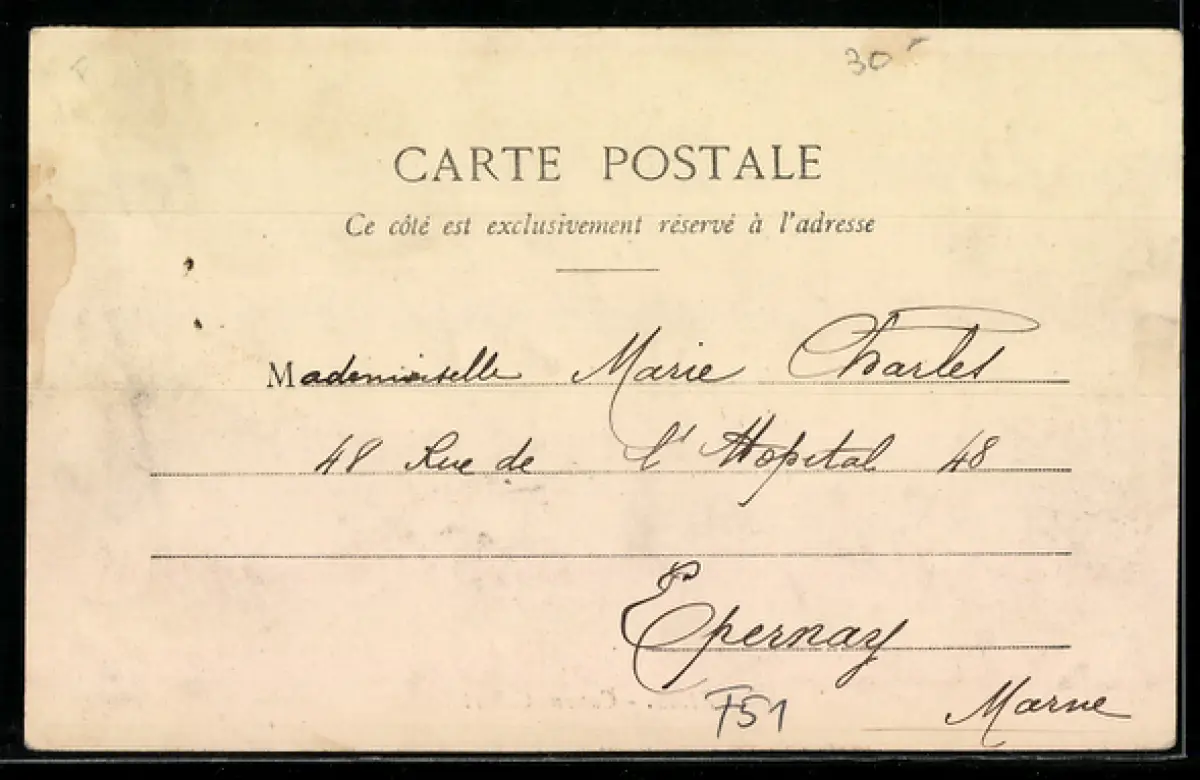 30
CARTE POSTALE
Ce côté est exclusivement réservé à l'adresse
Mademoiselle Marie Charles
48 Rue de l'Hopital 48
Epernay
F51
Marne